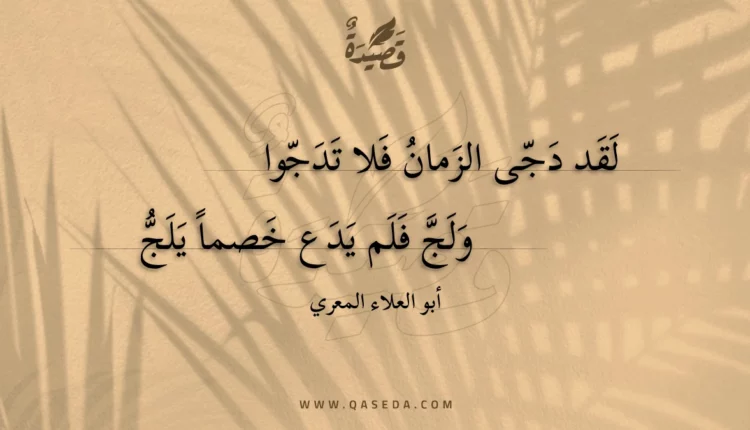 قَصِيدَةٌ
لَقَد دَجّى الزَمانُ فَلا تَدَجّوا
وَلَجَّ فَلَم يَدَع خَصماً يَلَجُّ
أبو العلاء المعري
WWW.QASEDA.COM